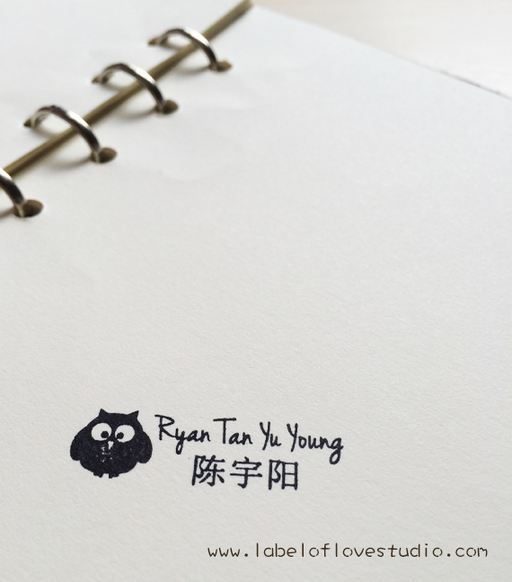 Ryan Tan Yu Young
陈宇阳
www.labeloflovestudio.com